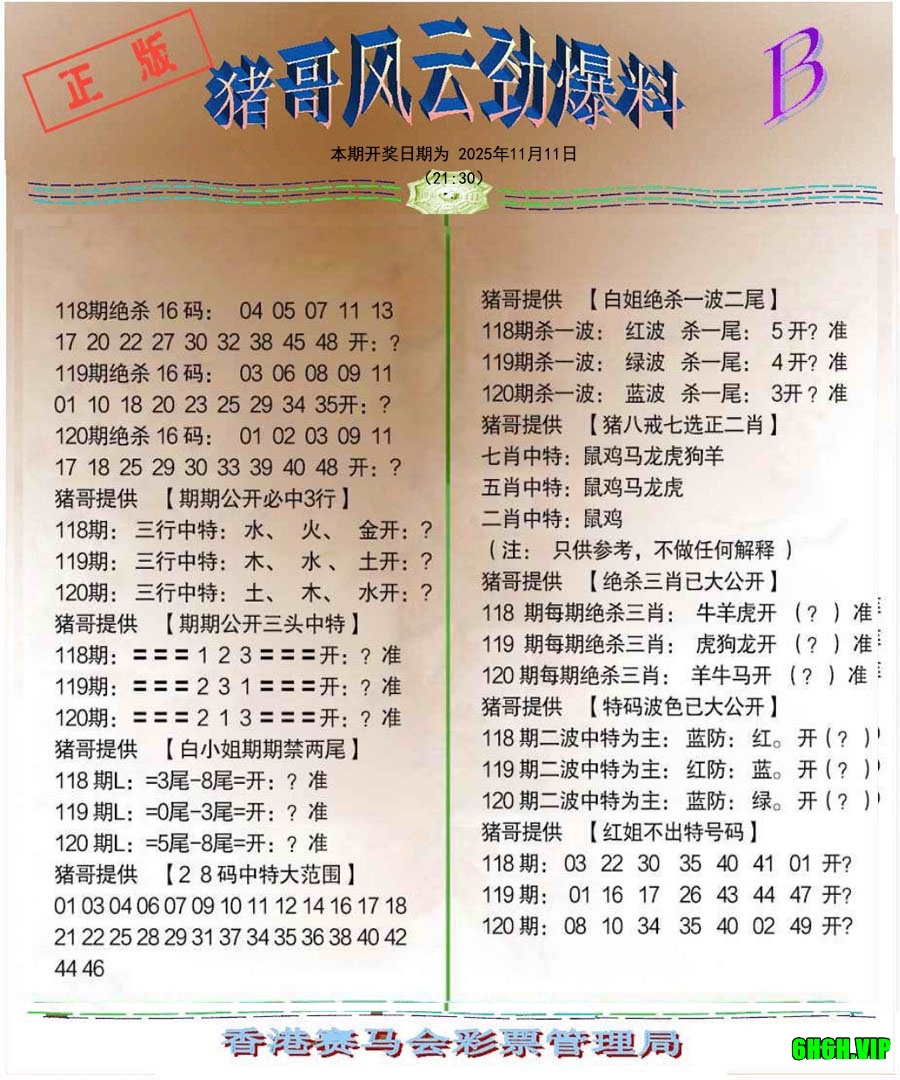 正版
猪哥风云劲爆料
B
本期开奖日期为 2025年11月11日
(21:30)
118期绝杀 16 码： 04 05 07 11 13
17 20 22 27 30 32 38 45 48 开：?
119期绝杀 16 码： 03 06 08 09 11
01 10 18 20 23 25 29 34 35开：?
120期绝杀 16 码： 01 02 03 09 11
17 18 25 29 30 33 39 40 48 开：?
猪哥提供 【期期公开必中3行】
118期： 三行中特： 水、 火、 金开：?
119期： 三行中特： 木、 水、 土开：?
120期： 三行中特： 土、 木、 水开：?
猪哥提供 【期期公开三头中特】
118期：〓〓〓 1 2 3 〓〓〓开：? 准
119期：〓〓〓 2 3 1 〓〓〓开：? 准
120期：〓〓〓 2 1 3 〓〓〓开：? 准
猪哥提供 【白小姐期期禁两尾】
118 期L：=3尾-8尾=开：? 准
119 期L：=0尾-3尾=开：? 准
120 期L：=5尾-8尾=开：? 准
猪哥提供 【2 8 码中特大范围】
01 03 04 06 07 09 10 11 12 14 16 17 18
21 22 25 28 29 31 37 34 35 36 38 40 42
44 46
猪哥提供 【白姐绝杀一波二尾】
118期杀一波： 红波 杀一尾： 5 开? 准
119期杀一波： 绿波 杀一尾： 4 开? 准
120期杀一波： 蓝波 杀一尾： 3开 ? 准
猪哥提供 【猪八戒七选正二肖】
七肖中特：鼠鸡马龙虎狗羊
五肖中特：鼠鸡马龙虎
二肖中特：鼠鸡
（注： 只供参考，不做任何解释 ）
猪哥提供 【绝杀三肖已大公开】
118 期每期绝杀三肖： 牛羊虎开 （? ）准
119 期每期绝杀三肖： 虎狗龙开 （? ）准
120 期每期绝杀三肖： 羊牛马开 （? ）准
猪哥提供 【特码波色已大公开】
118 期二波中特为主：蓝防：红。开（? ）
119 期二波中特为主：红防：蓝。开（? ）
120 期二波中特为主：蓝防：绿。开（? ）
猪哥提供 【红姐不出特号码】
118 期： 03 22 30 35 40 41 01 开?
119 期： 01 16 17 26 43 44 47 开?
120 期： 08 10 34 35 40 02 49 开?
香港赛马会彩票管理局
6H6H.VIP